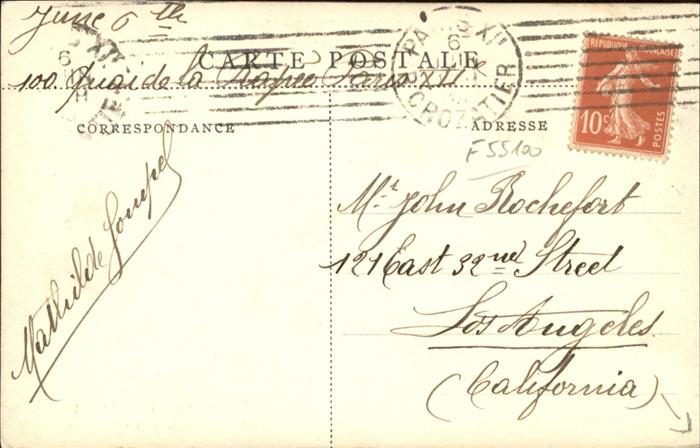 June 6th
CARTE POSTALE
100 Quai de la Rapée Paris XIIe
CORRESPONDANCE
ADRESSE
PARIS XII
R. CROZATIER
REPUBLIQUE FRANÇAISE
10c
POSTES
F 55100
Mr. John Rochefort
121 East 32nd Street
Los Angeles
(California)
Mathilde